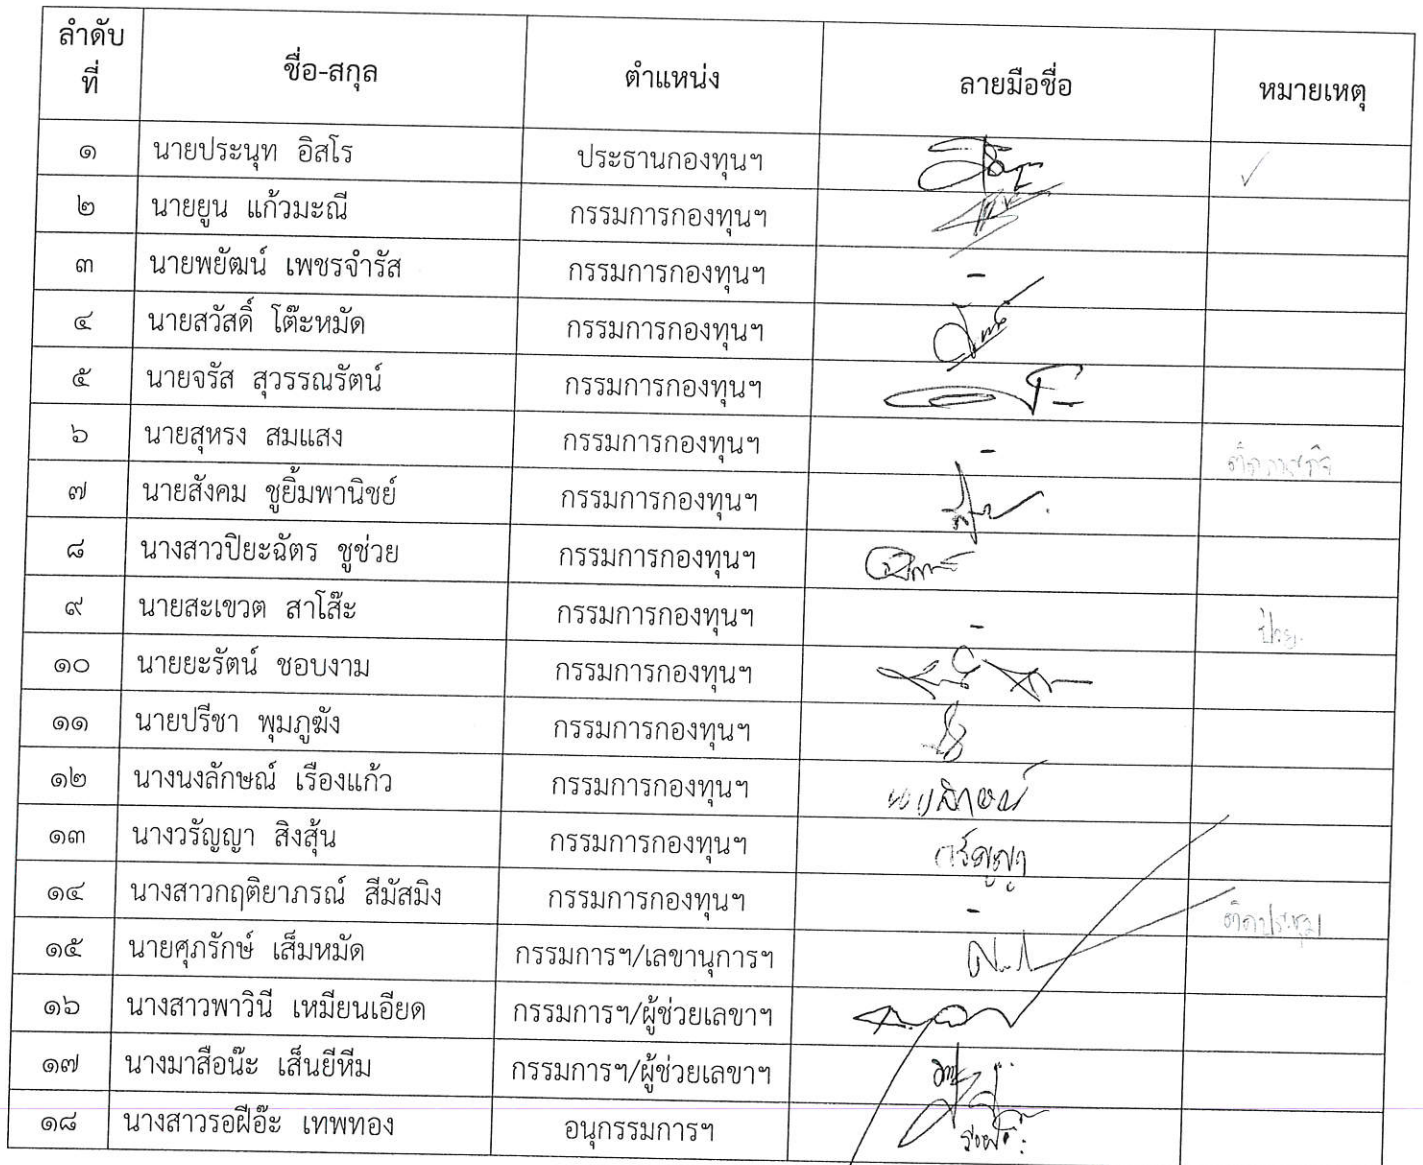 ลำดับที่ ชื่อ-สกุล ตำแหน่ง ลายมือชื่อ หมายเหตุ
๑ นายประนุท อิสโร ประธานกองทุนฯ ✓
๒ นายยูน แก้วมะณี กรรมการกองทุนฯ
๓ นายพยัฒน์ เพชรจำรัส กรรมการกองทุนฯ -
๔ นายสวัสดิ์ โต๊ะหมัด กรรมการกองทุนฯ
๕ นายจรัส สุวรรณรัตน์ กรรมการกองทุนฯ
๖ นายสุหรง สมแสง กรรมการกองทุนฯ - ติดภารกิจ
๗ นายสังคม ชูยิ้มพานิชย์ กรรมการกองทุนฯ
๘ นางสาวปิยะฉัตร ชูช่วย กรรมการกองทุนฯ
๙ นายสะเขวต สาโส๊ะ กรรมการกองทุนฯ - ป่วย
๑๐ นายยะรัตน์ ชอบงาม กรรมการกองทุนฯ
๑๑ นายปรีชา พุมภูฆัง กรรมการกองทุนฯ
๑๒ นางนงลักษณ์ เรืองแก้ว กรรมการกองทุนฯ นงลักษณ์
๑๓ นางวรัญญา สิงสุ้น กรรมการกองทุนฯ วรัญญา
๑๔ นางสาวกฤติยาภรณ์ สีมัสมิง กรรมการกองทุนฯ - ติดประชุม
๑๕ นายศุภรักษ์ เส็มหมัด กรรมการฯ/เลขานุการฯ
๑๖ นางสาวพาวินี เหมียนเอียด กรรมการฯ/ผู้ช่วยเลขาฯ
๑๗ นางมาสือน๊ะ เส็นยีหีม กรรมการฯ/ผู้ช่วยเลขาฯ
๑๘ นางสาวรอฝีอ๊ะ เทพทอง อนุกรรมการฯ